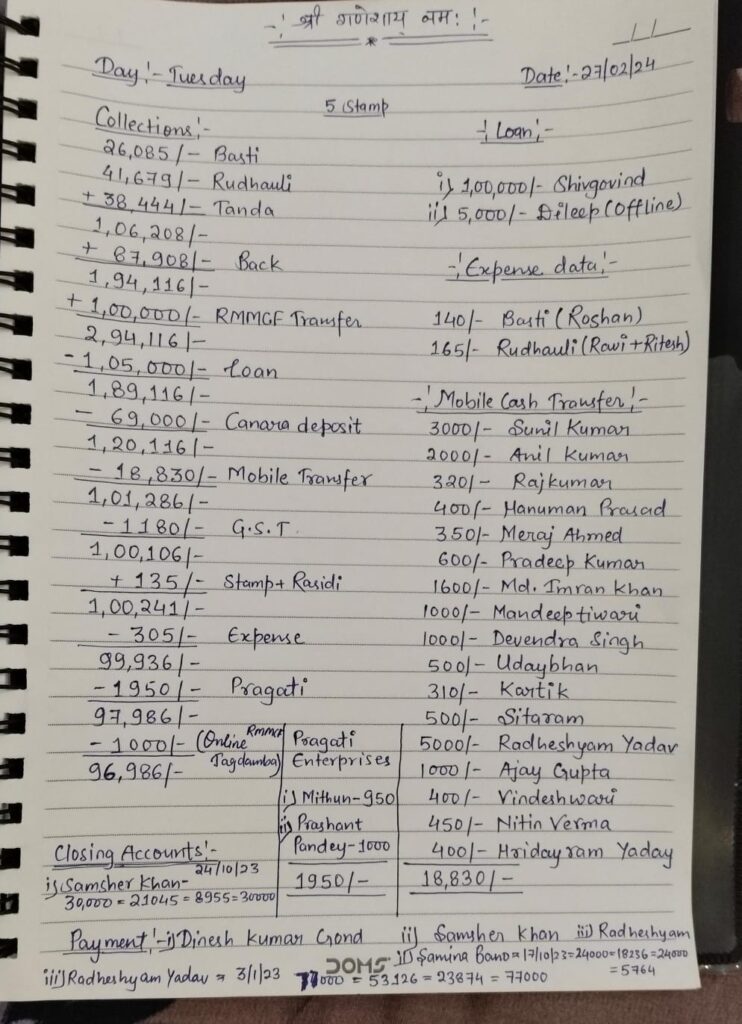 -!- श्री गणेशाय नमः -!-
Day:- Tuesday
Date:- 27/02/24
5 Stamp
Collections:-
26,085/- Basti
41,679/- Rudhauli
+ 38,444/- Tanda
1,06,208/-
+ 87,908/- Back
1,94,116/-
+ 1,00,000/- RMMGF Transfer
2,94,116/-
- 1,05,000/- Loan
1,89,116/-
- 69,000/- Canara deposit
1,20,116/-
- 18,830/- Mobile Transfer
1,01,286/-
- 1180/- G.S.T.
1,00,106/-
+ 135/- Stamp + Rasidi
1,00,241/-
- 305/- Expense
99,936/-
- 1950/- Pragati
97,986/-
- 1000/- (Online RMMGF
Jagdamba)
96,986/-
-!- Loan -!-
i) 1,00,000/- Shivgovind
ii) 5,000/- Dileep (Offline)
-!- Expense data -!-
140/- Basti (Roshan)
165/- Rudhauli (Ravi + Ritesh)
-!- Mobile Cash Transfer -!-
3000/- Sunil Kumar
2000/- Anil Kumar
320/- Rajkumar
400/- Hanuman Prasad
350/- Meraj Ahmed
600/- Pradeep Kumar
1600/- Md. Imran Khan
1000/- Mandeep tiwari
1000/- Devendra Singh
500/- Udaybhan
310/- Kartik
500/- Sitaram
5000/- Radheshyam Yadav
1000/- Ajay Gupta
400/- Vindeshwari
450/- Nitin Verma
400/- Hridayram Yadav
18,830/-
Pragati
Enterprises
i) Mithun - 950
ii) Prashant
Pandey - 1000
1950/-
Closing Accounts:-
24/10/23
i) Samsher Khan-
30,000 = 21045 = 8955 = 30000
Payment:- i) Dinesh Kumar Gond ii) Samsher Khan iii) Radheshyam
ii) Samina Bano = 17/10/23 = 24000 = 18236 = 24000
= 5764
iii) Radheshyam Yadav = 3/1/23 77000 = 53126 = 23874 = 77000
DOMS